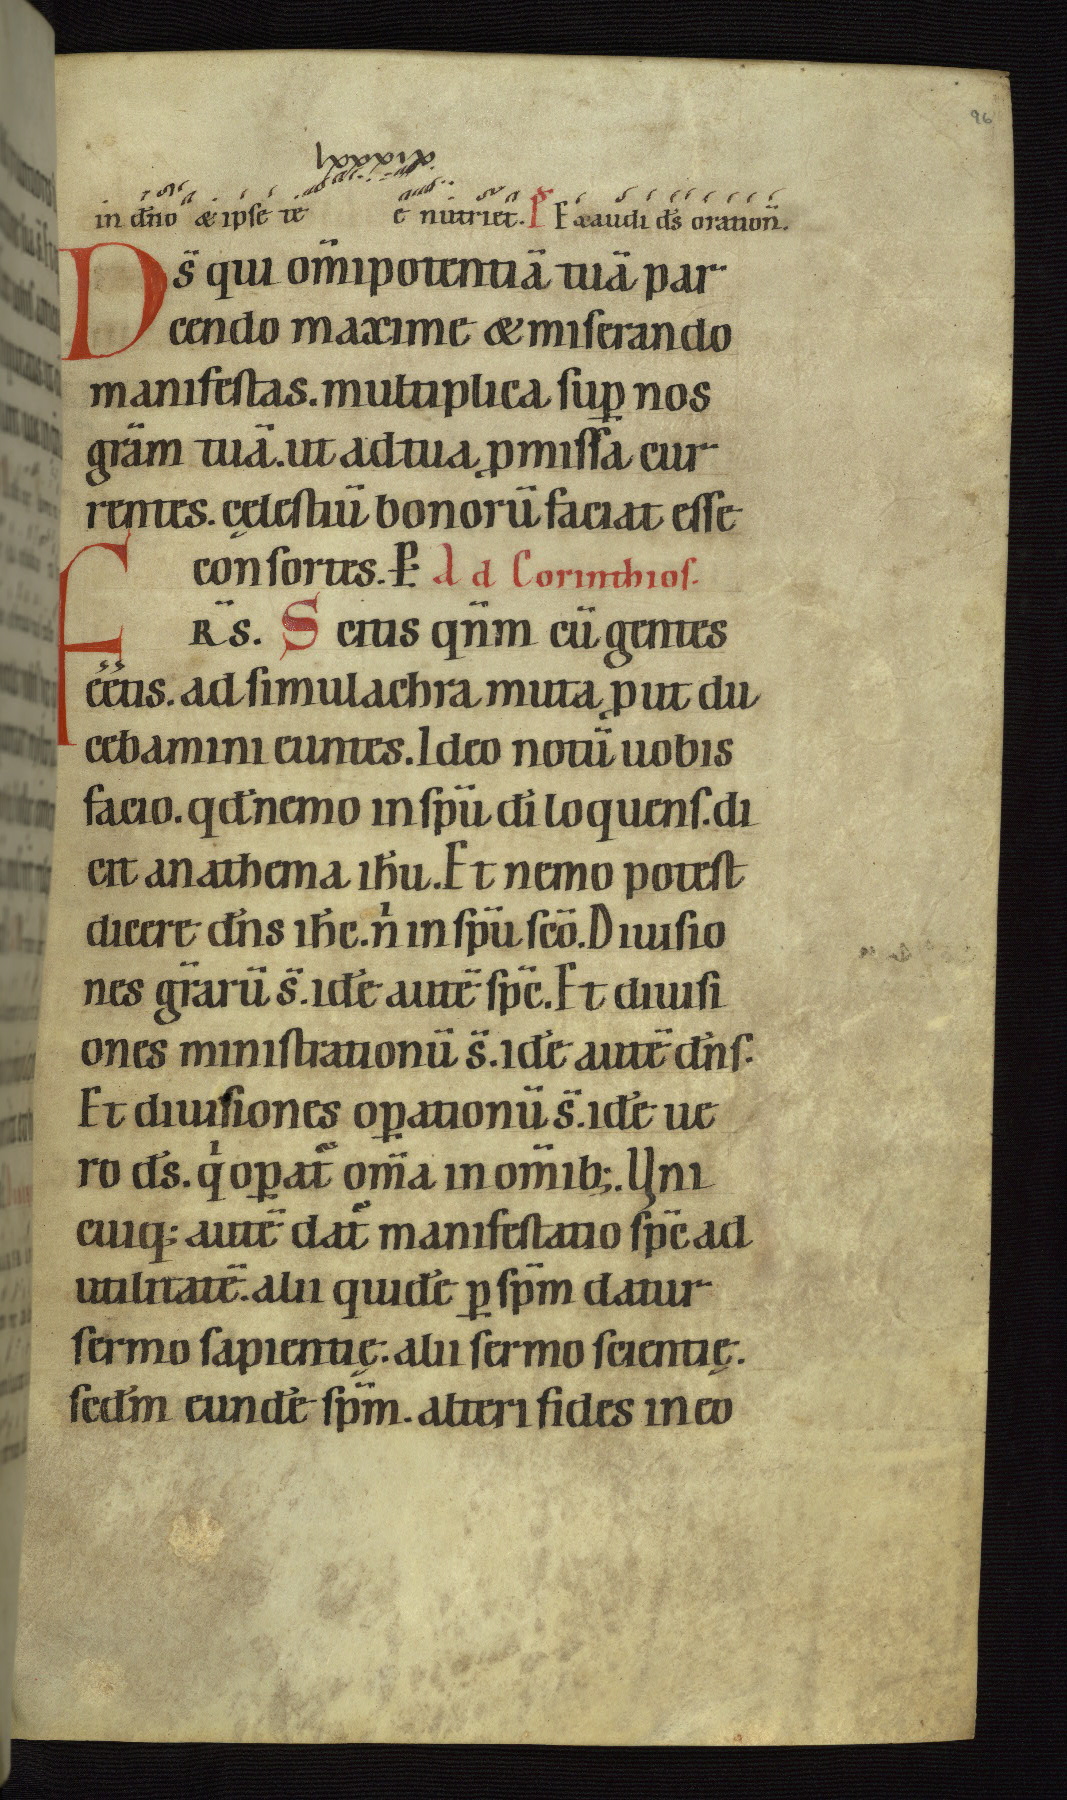 96
in dn̄o & ipse te e nutriet. P̄ Exaudi ds̄ oration̄.
Ds̄ qui om̄ipotentiā tuā par
cendo maxime & miserando
manifestas. multiplica sup̱ nos
grām tuā. ut ad tua p̱missa cur
rentes. cęlestiū bonorū faciat esse
consortes. P̱. Ad Corinthios.
FRS̄. Scitis qn̄m cū gentes
eētis. ad simulachra muta p̱ut du
cebamini euntes. Ideo notū uobis
facio. qđ nemo in spū dī loquens. di
cit anathema ihū. Et nemo potest
dicere dn̄s ihc̄. nⁱ in spū scō. Diuisio
nes grārū s̄. idē autē spc̄. Et diuisi
ones ministrationū s̄. idē autē dn̄s.
Et diuisiones op̱ationū s̄. idē ue
ro ds̄. qⁱ op̱at̄ om̄a in om̄ib;. Uni
cuiq; autē dat̄ manifestatio spc̄ ad
utilitatē. alii quidē p̱ spm̄ datur
sermo sapientię. alii sermo scientię.
scđm eundē spm̄. alteri fides in eo